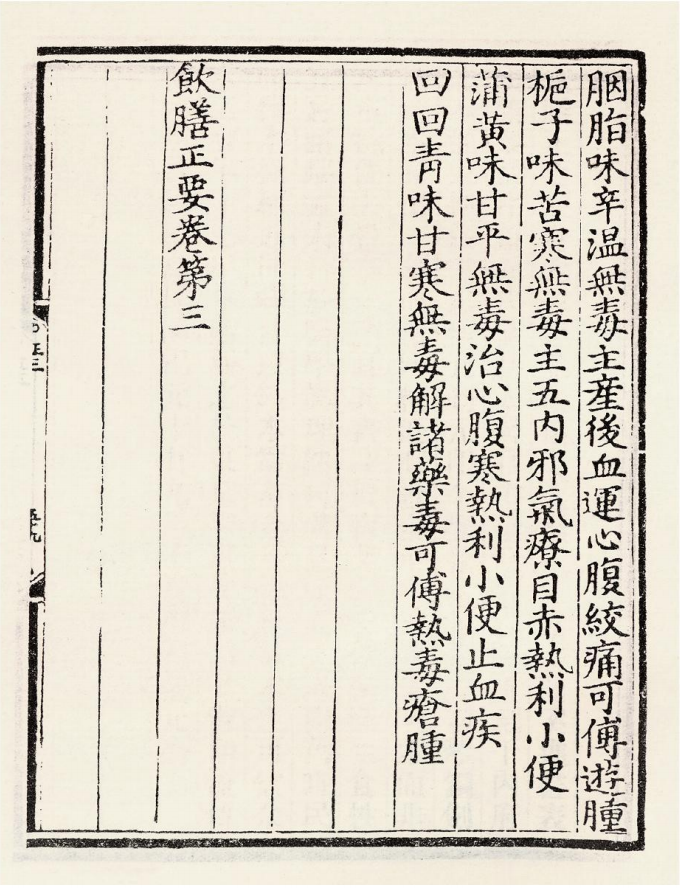 胭脂味辛温無毒主産後血運心腹絞痛可傅遊腫
梔子味苦寒無毒主五内邪氣療目赤熱利小便
蒲黄味甘平無毒治心腹寒熱利小便止血疾
回回青味甘寒無毒解諸藥毒可傅熱毒瘡腫
飲膳正要卷第三